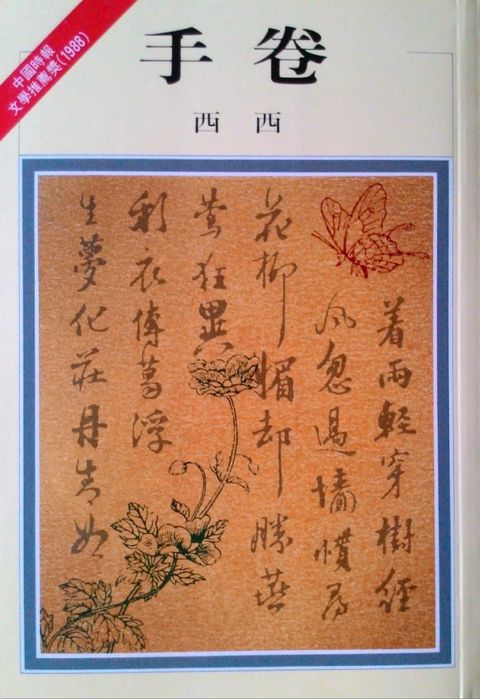 中國時報
文學推薦獎(1988)
手卷
西西
着雨輕穿樹經
風忽過墻慣尋
花柳媚却勝燕
鶯狂異
彩衣傳葛浮
生夢化莊丹青如